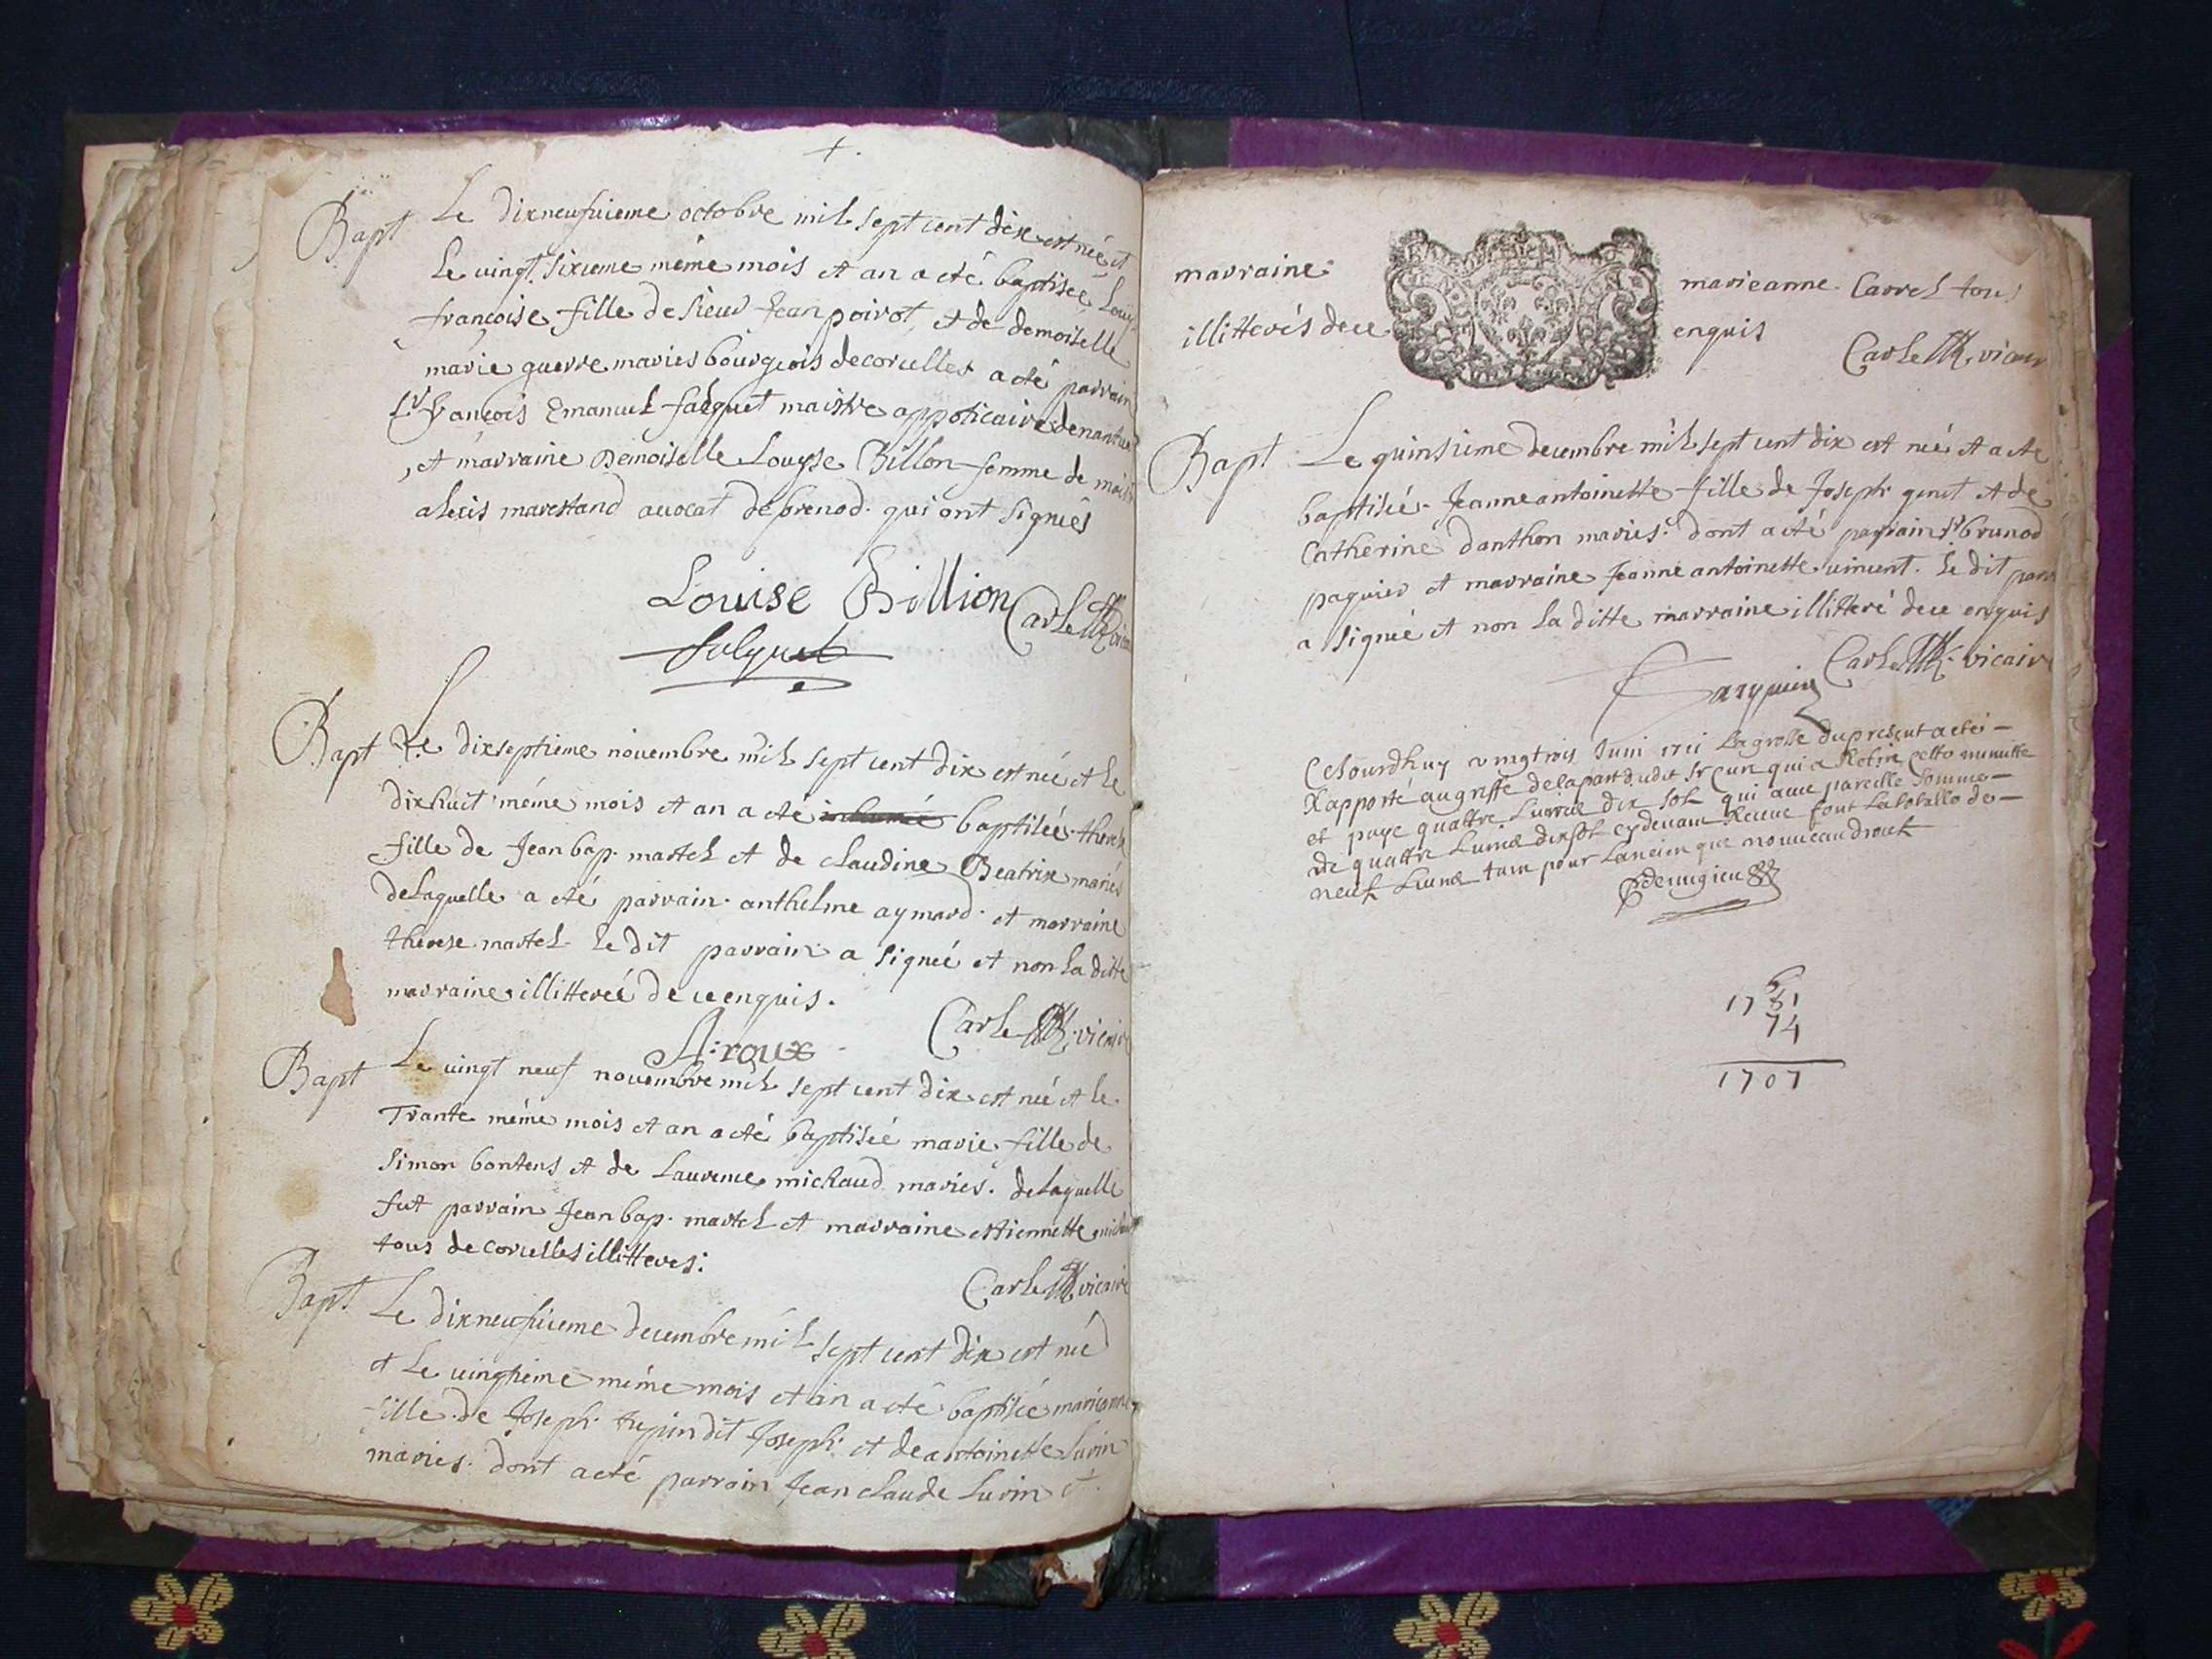 +.
Bapt Le dixneufuieme octobre mil sept cent dix est née et
le vingt sixieme même mois et an a eté baptiseé Louy
francoise fille de sieur Jean poirot et de demoiselle
marie guerre mariés bourgeois de corcelles a eté parrain
Sr francois Emanuel falquet maistre appoticaire de nantua
et marraine Demoiselle Louyse Billon femme de
alexis marchand auocat de brenod. qui ont signés
Louise Billion Carle vicaire
falquet
Bapt Le dixseptieme nouembre mil sept cent dix est neé et le
dixhuit même mois et an a eté baptiseé therese
fille de Jean bap. martel et de claudine Beatrix mariés
de laquelle a eté parrain anthelme aymard et marraine
therese martel le dit parrain a signé et non la ditte
marraine illittereé de ce enquis.
Carle vicaire
A: roux
Bapt Le vingt neuf nouembre mil sept cent dix est neé et le
Trante même mois et an a eté baptiseé marie fille de
Simon bontens et de Laurence michaud mariés. de laquelle
fut parrain Jean bap. martel et marraine estiennette
tous de corcelles illitteres:
Carle vicaire
Bapt Le dixneufuieme decembre mil sept cent dix est neé
et le vingtieme même mois et an a eté baptiseé marieanne
fille de Joseph tupin dit Joseph et de antoinette Lurin
mariés. dont a eté parrain Jean claude Lurin et
marraine marieanne Carrel tous
illitterés de ce enquis
Carle vicaire
Bapt Le quinsieme decembre mil sept cent dix est neé et a eté
baptiseé Jeanne antoinette fille de Joseph genet et de
Catherine danthon mariés. dont a eté parrain Sr brunod
paquier et marraine Jeanne antoinette vincent. Le dit parr
a signé et non la ditte marraine illitteré de ce enquis
Carle vicaire
Parquier
Cejourdhuy vingt trois Juin La grosse du present acte
Rapporté au greffe de la part dudit Sr Curé qui a Retiré cette minutte
et payé quattre Liures dix sols qui auec pareille somme
de quattre Liures dix sols cy deuant Receue font La totalle de
neuf Liures tam pour Lancien que nouueau droit
6
1781
74
1707